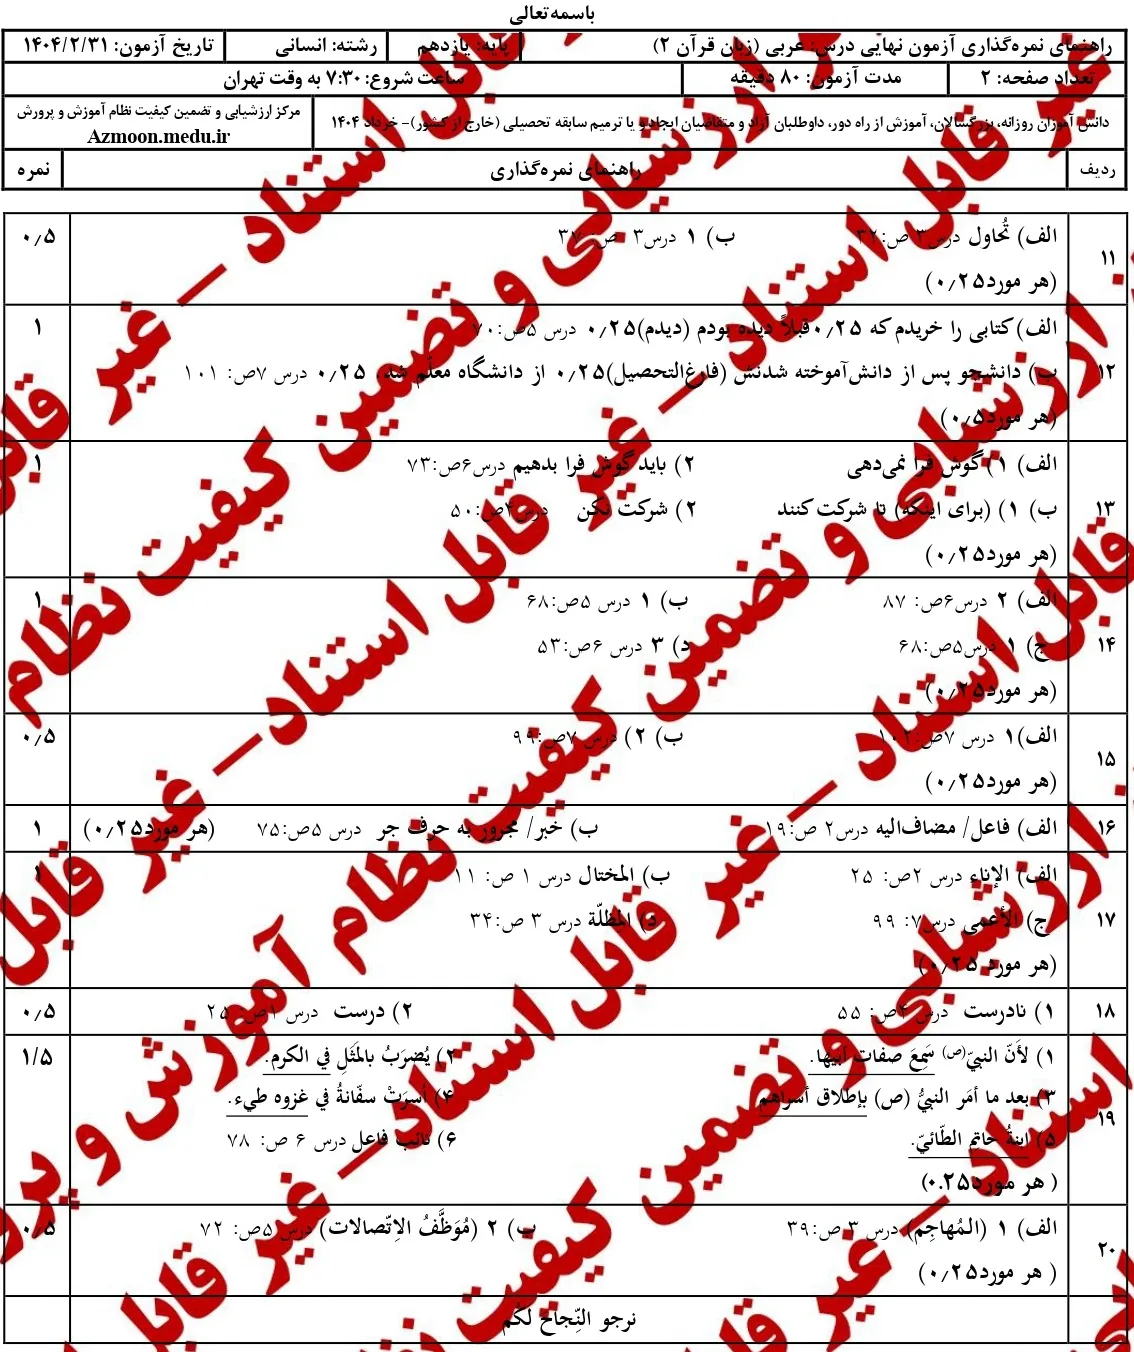 باسمه‌تعالی
راهنمای نمره‌گذاری آزمون نهایی درس: عربی (زبان قرآن ۲) پایه: یازدهم رشته: انسانی تاریخ آزمون: ۱۴۰۴/۲/۳۱
تعداد صفحه: ۲ مدت آزمون: ۸۰ دقیقه ساعت شروع: ۷:۳۰ به وقت تهران
دانش آموزان روزانه، بزرگسالان، آموزش از راه دور، داوطلبان آزاد و متقاضیان ایجاد و یا ترمیم سابقه تحصیلی (خارج از کشور) – خرداد ۱۴۰۴ مرکز ارزشیابی و تضمین کیفیت نظام آموزش و پرورش
Azmoon.medu.ir
ردیف راهنمای نمره‌گذاری نمره
۱۱ الف) تُحاول درس۳ ص:۳۲ ب) ۱ درس۳ ص: ۳۷ ۰/۵
(هر مورد۰/۲۵)
الف) کتابی را خریدم که ۰/۲۵ قبلاً دیده بودم (دیدم)۰/۲۵ درس ۵ص:۷۰ ۱
۱۲ ب) دانشجو پس از دانش‌آموخته شدنش (فارغ‌التحصیل)۰/۲۵ از دانشگاه معلّم شد. ۰/۲۵ درس ۷ص: ۱۰۱
(هر مورد۰/۵)
الف) ۱) گوش فرا نمی‌دهی ۲) باید گوش فرا بدهیم درس۶ص:۷۳ ۱
۱۳ ب) ۱) (برای اینکه) تا شرکت کنند ۲) شرکت نکن درس۴ص:۵۰
(هر مورد۰/۲۵)
الف) ۲ درس۶ص: ۸۷ ب) ۱ درس ۵ص:۶۸ ۱
۱۴ ج) ۱ درس۵ص:۶۸ د) ۳ درس ۶ص:۵۳
(هر مورد۰/۲۵)
الف)۱ درس ۷ص:۱۰۲ ب) ۲) درس ۷ص:۹۹ ۰/۵
۱۵ (هر مورد۰/۲۵)
۱۶ الف) فاعل/ مضاف‌الیه درس۲ ص:۱۹ ب) خبر/ مجرور به حرف جر درس ۵ص:۷۵ (هر مورد۰/۲۵) ۱
الف) الإناء درس ۲ص: ۲۵ ب) المختال درس ۱ ص: ۱۱ ۱
۱۷ ج) الأعمی درس۷: ۹۹ د) المظلّة درس ۳ ص:۳۴
(هر مورد ۰/۲۵)
۱۸ ۱) نادرست درس ۴ص: ۵۵ ۲) درست درس ۱ص: ۲۵ ۰/۵
۱) لأنّ النبيّ(ص) سَمِعَ صفات أبیها. ۲) یُضرَبُ بالمَثَلِ في الکرم. ۱/۵
۳) بعد ما أمَر النبيُّ (ص) بإطلاق أسراهم ۴) أُسرَتْ سفّانةُ في غزوه طيء.
۱۹ ۵) ابنةُ حاتم الطّائيّ. ۶) نائب فاعل درس ۶ ص: ۷۸
( هر مورد۰.۲۵)
الف) ۱ (الـمُهاجِم) درس ۳ ص:۳۹ ب) ۲ (مُوَظَّفُ الاِتّصالات) درس ۵ص: ۷۲ ۰/۵
۲۰ ( هر مورد۰/۲۵)
نرجو النِّجاحَ لکُم
ارزشیابی و تضمین کیفیت نظام آموزش و پرورش
غیر قابل استناد – غیر قابل استناد – غیر قابل استناد